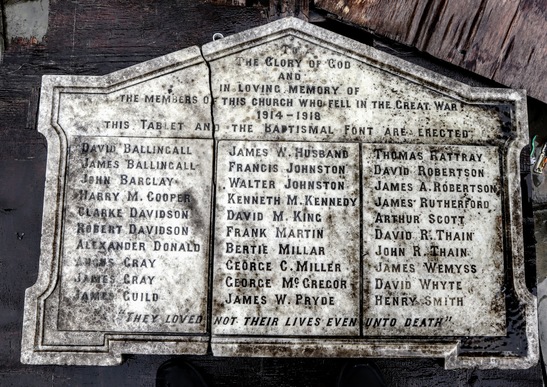 To
The Glory of God
and
in loving memory of
the members of this church who fell in the Great War
1914-1918
this Tablet and the Baptismal Font are erected
David Ballingall
James Ballingall
John Barclay
Harry M. Cooper
Clarke Davidson
Robert Davidson
Alexander Donald
Angus Gray
James Gray
James Guild
James W. Husband
Francis Johnston
Walter Johnston
Kenneth M. Kennedy
David M. King
Frank Martin
Bertie Millar
George C. Miller
George McGregor
James W. Pryde
Thomas Rattray
David Robertson
James A. Robertson
James Rutherford
Arthur Scott
David R. Thain
John R. Thain
James Wemyss
David Whyte
Henry Smith
"They loved not their lives even unto death"